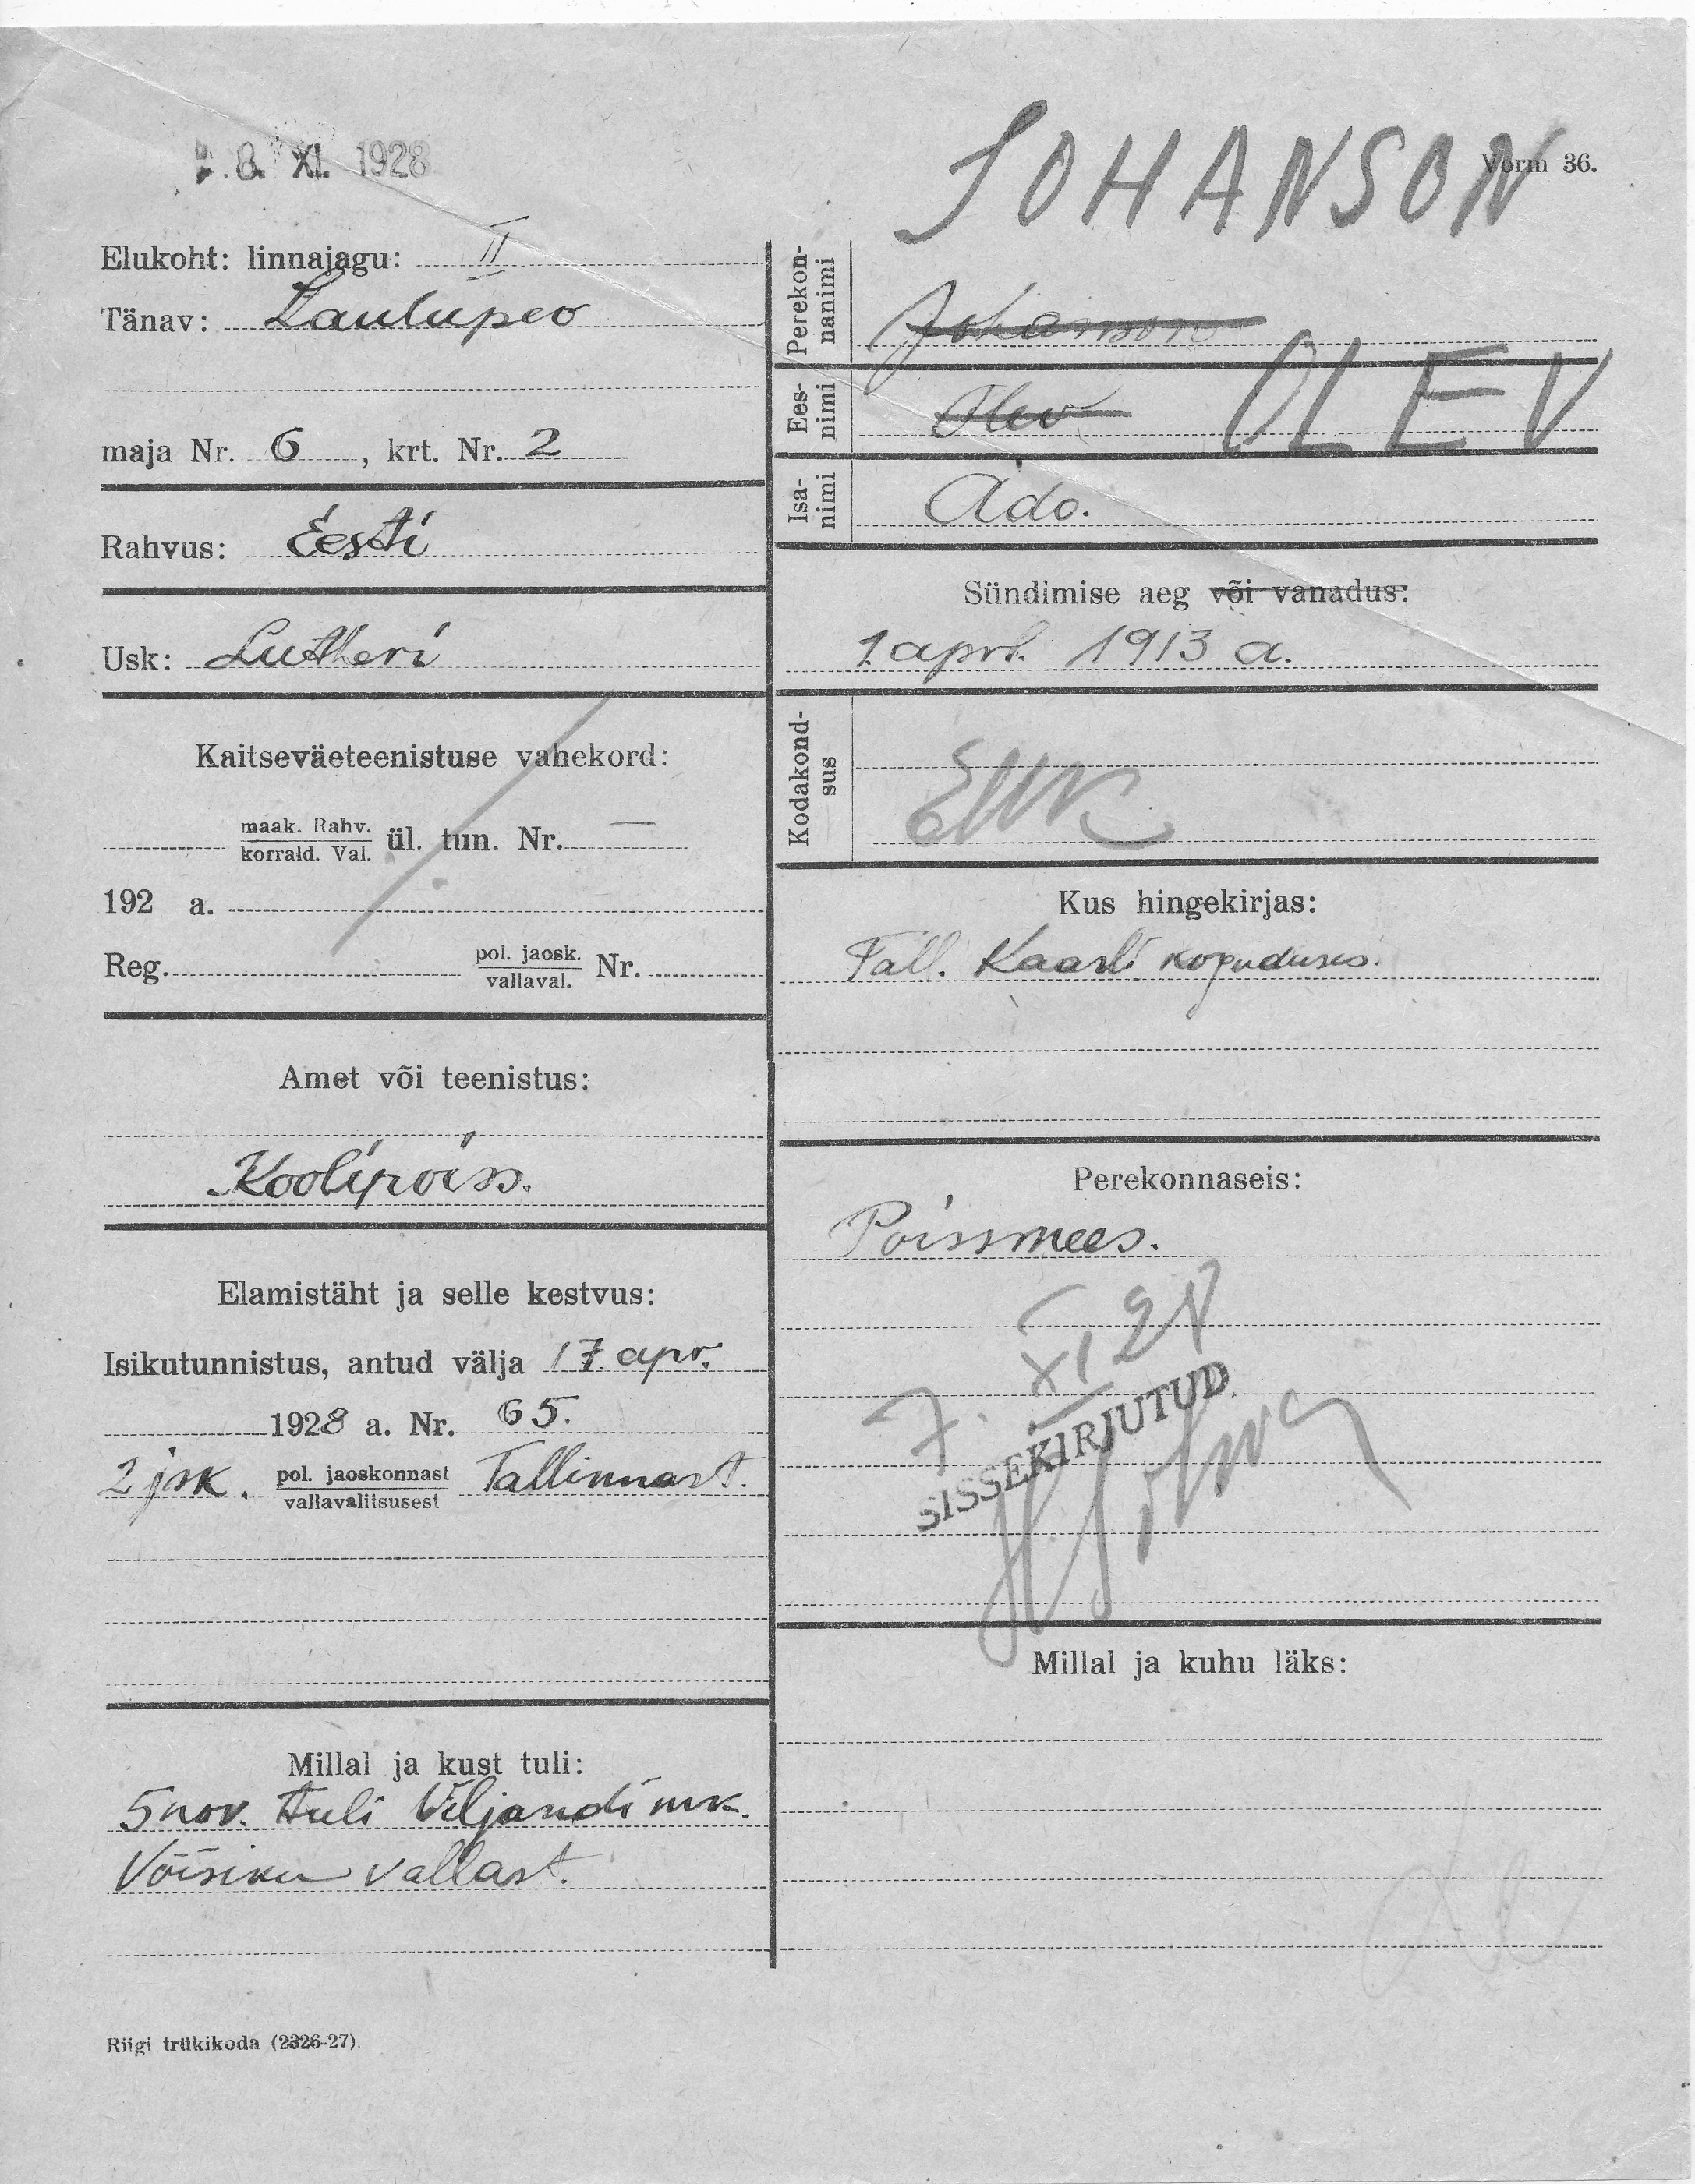 8. XI. 1928
Vorm 36.
JOHANSON
Elukoht: linnajagu: II
Tänav: Laulupeo
maja Nr. 6, krt. Nr. 2
Rahvus: Eesti
Usk: Lutheri
Kaitseväeteenistuse vahekord:
maak. Rahv.
korrald. Val. ül. tun. Nr. —
192 a.
Reg. pol. jaosk.
vallaval. Nr.
Amet või teenistus:
Koolipoiss.
Elamistäht ja selle kestvus:
Isikutunnistus, antud välja 17. apr.
1928 a. Nr. 65.
2 jsk. pol. jaoskonnast Tallinnast.
vallavalitsusest
Millal ja kust tuli:
5 nov. tuli Viljandi mk.
Võisiku vallast.
Riigi trükikoda (2326-27).
Perekon-
nanimi Johanson
Ees-
nimi Olev OLEV
Isa-
nimi Ado.
Sündimise aeg või vanadus:
1. aprl. 1913 a.
Kodakond-
sus
Kus hingekirjas:
Tall. Kaarli koguduses.
Perekonnaseis:
Poissmees.
7. XI 28
SISSEKIRJUTUD
Millal ja kuhu läks: